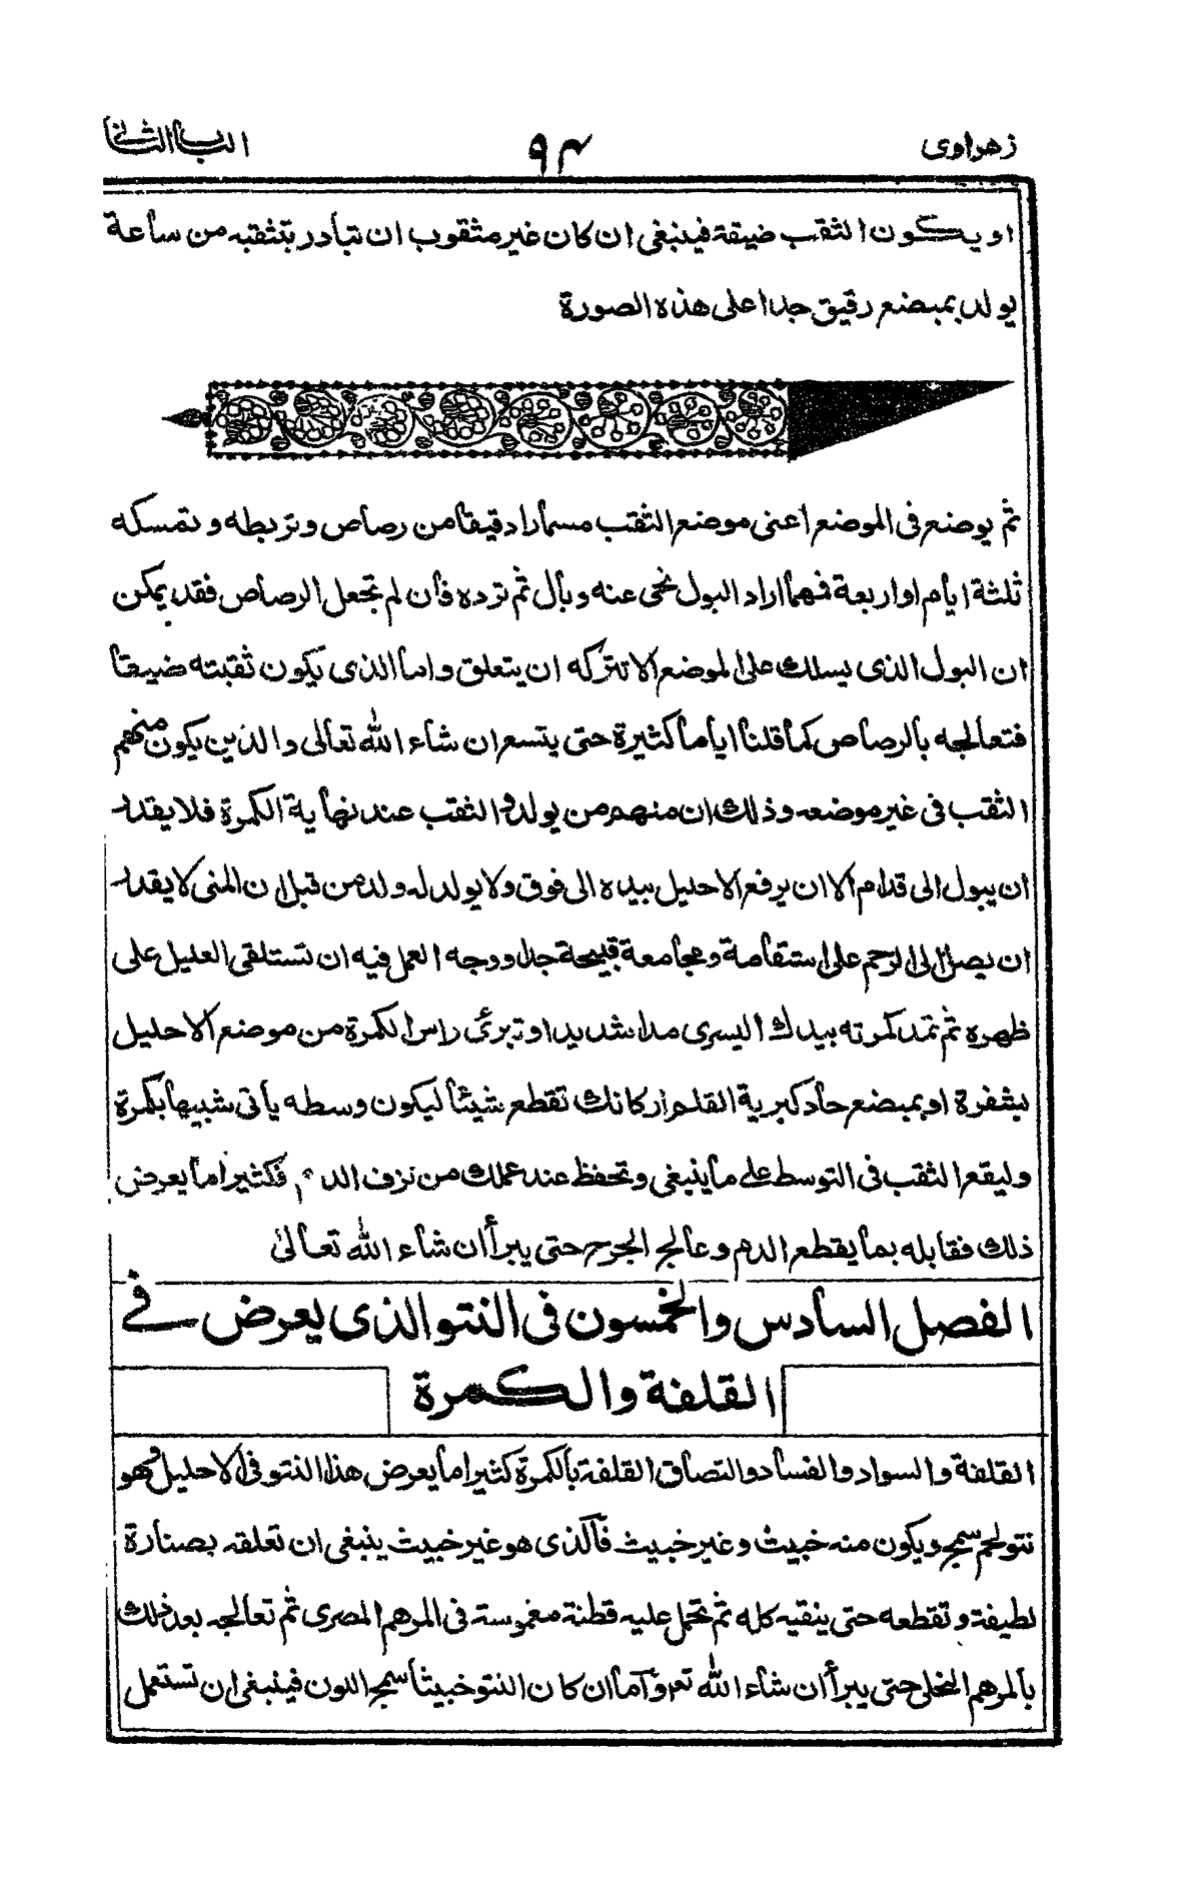 زهراوى ٩٤ الباب الثانى
او يكون الثقب ضيقة فينبغى ان كان غير مثقوب ان تبادر بتثقبه من ساعة
يولد بمبضع رقيق جدا على هذه الصورة
ثم يوضع فى الموضع اعنى موضع الثقب مسمارا دقيقا من رصاص وتربطه وتمسكه
ثلثة ايام او اربعة فمهما اراد البول نحى عنه وبال ثم ترده فأن لم تجعل الرصاص فقد يمكن
ان البول الذى يسلك على الموضع الا تتركه ان يتعلق واما الذى يكون ثقبته ضيقا
فتعالجه بالرصاص كما قلنا اياما كثيرة حتى يتسع ان شاء الله تعالى والذين يكون منهم
الثقب فى غير موضعه وذلك ان منهم من يولد والثقب عند نهاية الكمرة فلا يقدر
ان يبول الى قدام الا ان يرفع الاحليل بيده الى فوق ولا يولد له ولد من قبل ان المنى لا يقدر
ان يصل الى الرحم على استقامة ومجامعة قبيحة جدا ووجه العمل فيه ان تستلقى العليل على
ظهره ثم تمد كمرته بيدك اليسرى مدا شديدا وتبرئ راس الكمرة من موضع الاحليل
بشفرة او بمبضع حاد كبرية القلم او كانك تقطع شيئا ليكون وسطه يأتى شبيها بكمرة
وليقع الثقب فى التوسط على ما ينبغى وتحفظ عند عملك من نزف الدم فكثيرا ما يعرض
ذلك فقابله بما يقطع الدم وعالج الجرح حتى يبرأ ان شاء الله تعالى
الفصل السادس والخمسون فى النتو الذى يعرض فى
القلفة والكمرة
القلفة والسواد والفساد والتصاق القلفة بالكمرة كثيرا ما يعرض هذا النتو فى الاحليل وهو
نتو لحم سمج ويكون منه خبيث وغير خبيث فالذى هو غير خبيث ينبغى ان تعلقه بصنارة
لطيفة وتقطعه حتى ينقيه كله ثم تحمل عليه قطنة مغموسة فى المرهم المصرى ثم تعالجه بعد ذلك
بالمرهم النخلى حتى يبرأ ان شاء الله تعم وأما ان كان النتو خبيثا سمج اللون فينبغى ان تستعمل